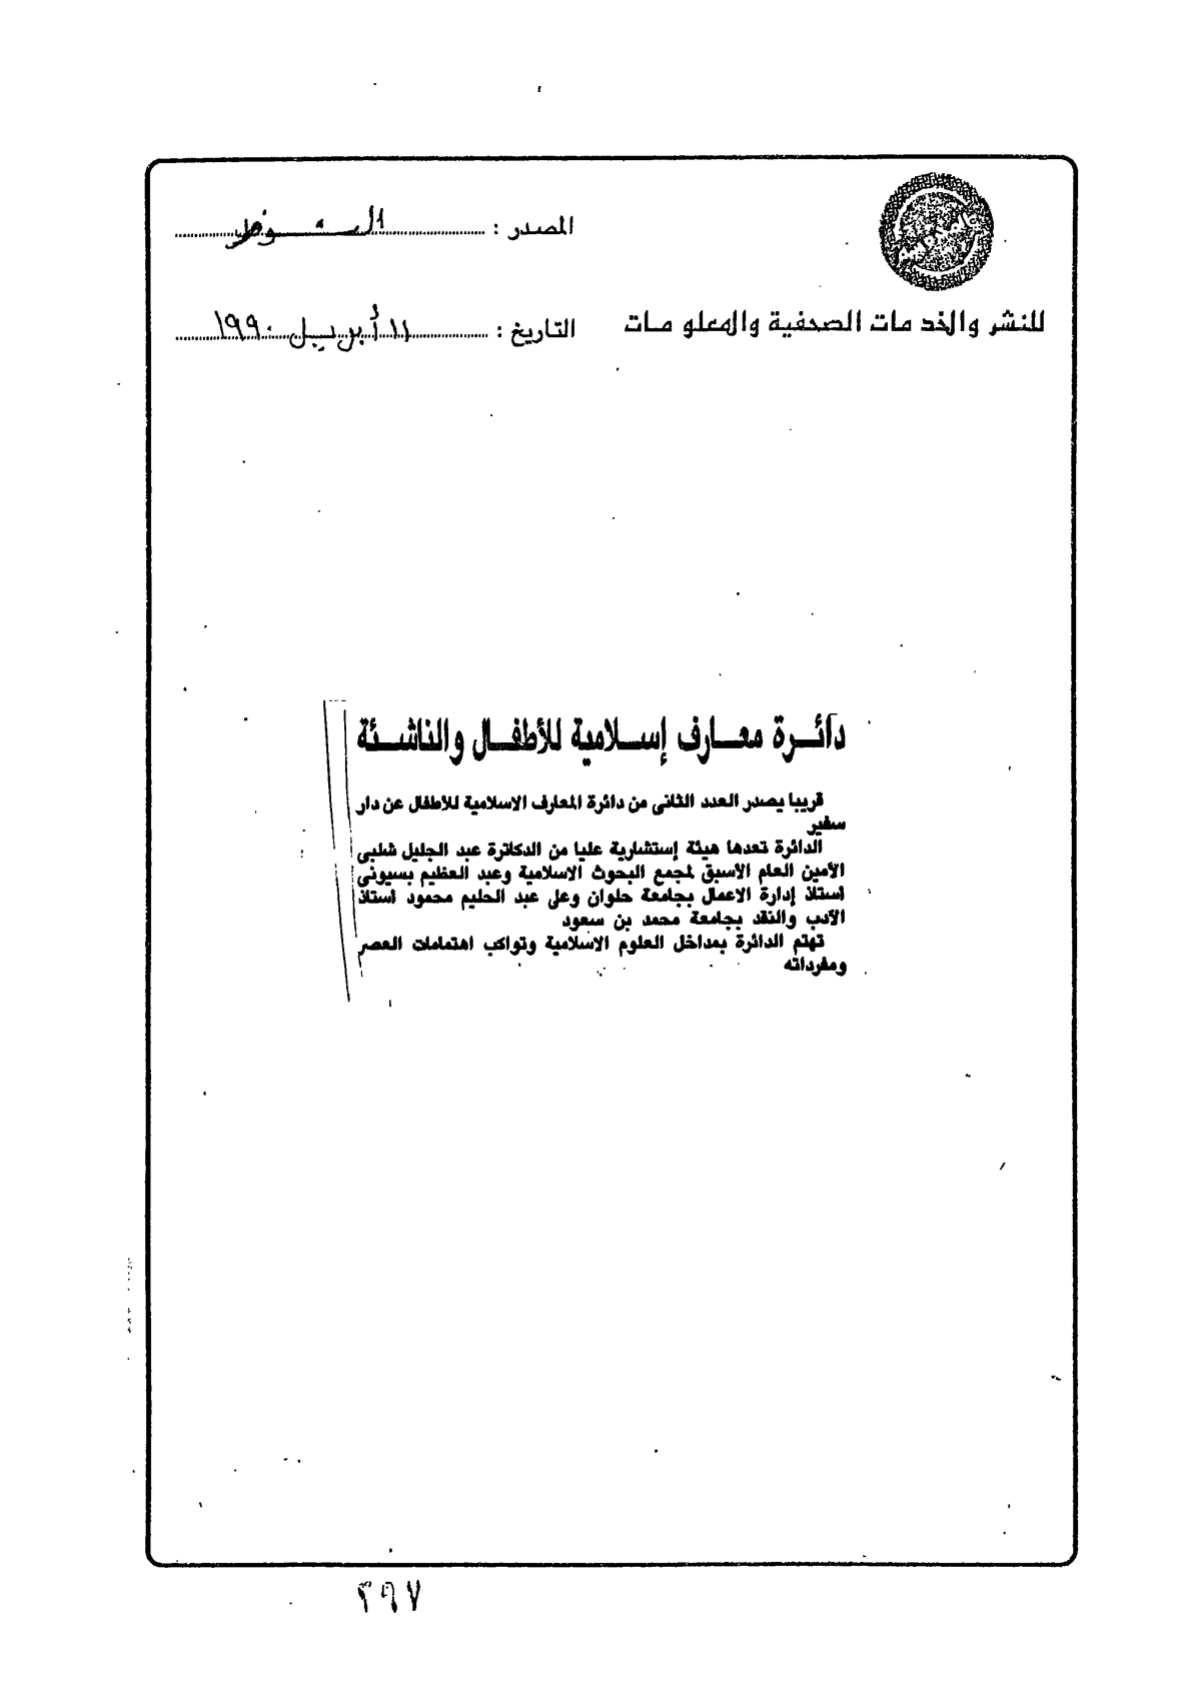 المصدر :
للنشر والخدمات الصحفية والمعلومات
التاريخ : ١١ أبريل ١٩٩٠
دائرة معارف إسلامية للأطفال والناشئة
قريبا يصدر العدد الثانى من دائرة المعارف الاسلامية للاطفال عن دار
سفير
الدائرة تعدها هيئة إستشارية عليا من الدكاترة عبد الجليل شلبى
الأمين العام الأسبق لمجمع البحوث الاسلامية وعبد العظيم بسيونى
أستاذ إدارة الاعمال بجامعة حلوان وعلى عبد الحليم محمود أستاذ
الأدب والنقد بجامعة محمد بن سعود
تهتم الدائرة بمداخل العلوم الاسلامية وتواكب اهتمامات العصر
ومفرداته
٢٩٧